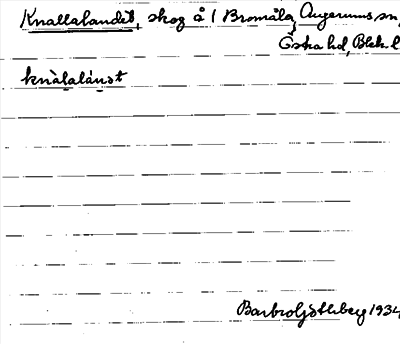 Knallalandet, skog å 1 Bromåla, Augerums sn,
Östra hd, Blek. l
knàlalánət
Barbro Ljöthberg 1934